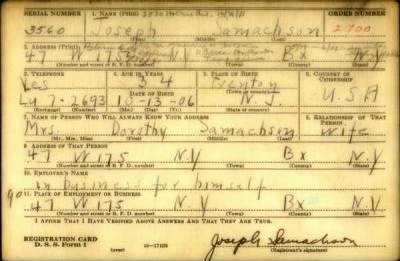 SERIAL NUMBER 1. NAME (Print) ORDER NUMBER
3560 Joseph Samachson 2700
(First) (Middle) (Last)
2. ADDRESS (Print)
47 W 175 N.Y Bx N.Y
(Number and street or R. F. D. number) (Town) (County) (State)
3. TELEPHONE 4. AGE IN YEARS 5. PLACE OF BIRTH 6. COUNTRY OF CITIZENSHIP
Yes 34 Trenton
DATE OF BIRTH (Town or county)
LU 7-2693 10-13-06 N.J. U.S.A
(Exchange) (Number) (Mo.) (Day) (Yr.) (State or country)
7. NAME OF PERSON WHO WILL ALWAYS KNOW YOUR ADDRESS 8. RELATIONSHIP OF THAT PERSON
Mrs. Dorothy Samachson Wife
(Mr., Mrs., Miss) (First) (Middle) (Last)
9. ADDRESS OF THAT PERSON
47 W 175 N.Y Bx N.Y
(Number and street or R. F. D. number) (Town) (County) (State)
10. EMPLOYER'S NAME
in business for himself
11. PLACE OF EMPLOYMENT OR BUSINESS
47 W 175 N.Y Bx N.Y
(Number and street or R. F. D. number) (Town) (County) (State)
I AFFIRM THAT I HAVE VERIFIED ABOVE ANSWERS AND THAT THEY ARE TRUE.
REGISTRATION CARD
D. S. S. Form 1 (over) 16-17105 Joseph Samachson
(Registrant's signature)